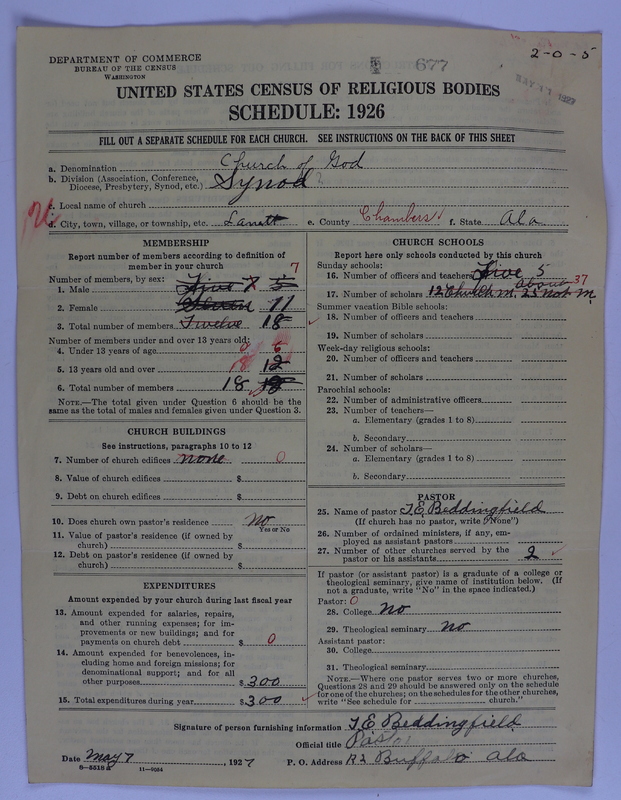 DEPARTMENT OF COMMERCE
BUREAU OF THE CENSUS
WASHINGTON
677
2-0-5
MAY 11 1927
UNITED STATES CENSUS OF RELIGIOUS BODIES
SCHEDULE: 1926
FILL OUT A SEPARATE SCHEDULE FOR EACH CHURCH. SEE INSTRUCTIONS ON THE BACK OF THIS SHEET
a. Denomination Church of God
b. Division (Association, Conference, Diocese, Presbytery, Synod, etc.) Synod
c. Local name of church
d. City, town, village, or township, etc. Lanett e. County Chambers f. State Ala
MEMBERSHIP
Report number of members according to definition of
member in your church
7
Number of members, by sex:
1. Male Five 7 5
2. Female 11
3. Total number of members Twelve 18
Number of members under and over 13 years old:
4. Under 13 years of age 0 6
5. 13 years old and over 18 12
6. Total number of members 18 18
NOTE.—The total given under Question 6 should be
same as the total of males and females given under Question 3.
CHURCH BUILDINGS
See instructions, paragraphs 10 to 12
7. Number of church edifices none 0
8. Value of church edifices $
9. Debt on church edifices $
10. Does church own pastor's residence No
Yes or No
11. Value of pastor's residence (if owned by
church) $
12. Debt on pastor's residence (if owned by
church) $
EXPENDITURES
Amount expended by your church during last fiscal year
13. Amount expended for salaries, repairs,
and other running expenses; for im-
provements or new buildings; and for
payments on church debt $ 0
14. Amount expended for benevolences, in-
cluding home and foreign missions; for
denominational support; and for all
other purposes $ 300
15. Total expenditures during year $ 300
CHURCH SCHOOLS
Report here only schools conducted by this church
Sunday schools:
16. Number of officers and teachers Five 5
about 37
17. Number of scholars 12 Church M, 25 not M
Summer vacation Bible schools:
18. Number of officers and teachers
19. Number of scholars
Week-day religious schools:
20. Number of officers and teachers
21. Number of scholars
Parochial schools:
22. Number of administrative officers
23. Number of teachers—
a. Elementary (grades 1 to 8)
b. Secondary
24. Number of scholars—
a. Elementary (grades 1 to 8)
b. Secondary
PASTOR
25. Name of pastor T.E. Beddingfield
(If church has no pastor, write "None")
26. Number of ordained ministers, if any, em-
ployed as assistant pastors
27. Number of other churches served by the
pastor or his assistants 2
If pastor (or assistant pastor) is a graduate of a college or
theological seminary, give name of institution below. (If
not a graduate, write "No" in the space indicated.)
Pastor: 0
28. College No
29. Theological seminary No
Assistant pastor:
30. College
31. Theological seminary
NOTE.—Where one pastor serves two or more churches,
Questions 28 and 29 should be answered only on the schedule
for one of the churches; on the schedules for the other churches,
write "See schedule for church."
Signature of person furnishing information T.E. Beddingfield
Official title Pastor
Date May 7, 1927 P. O. Address R2 Buffalo Ala
8-5518a 11-9054